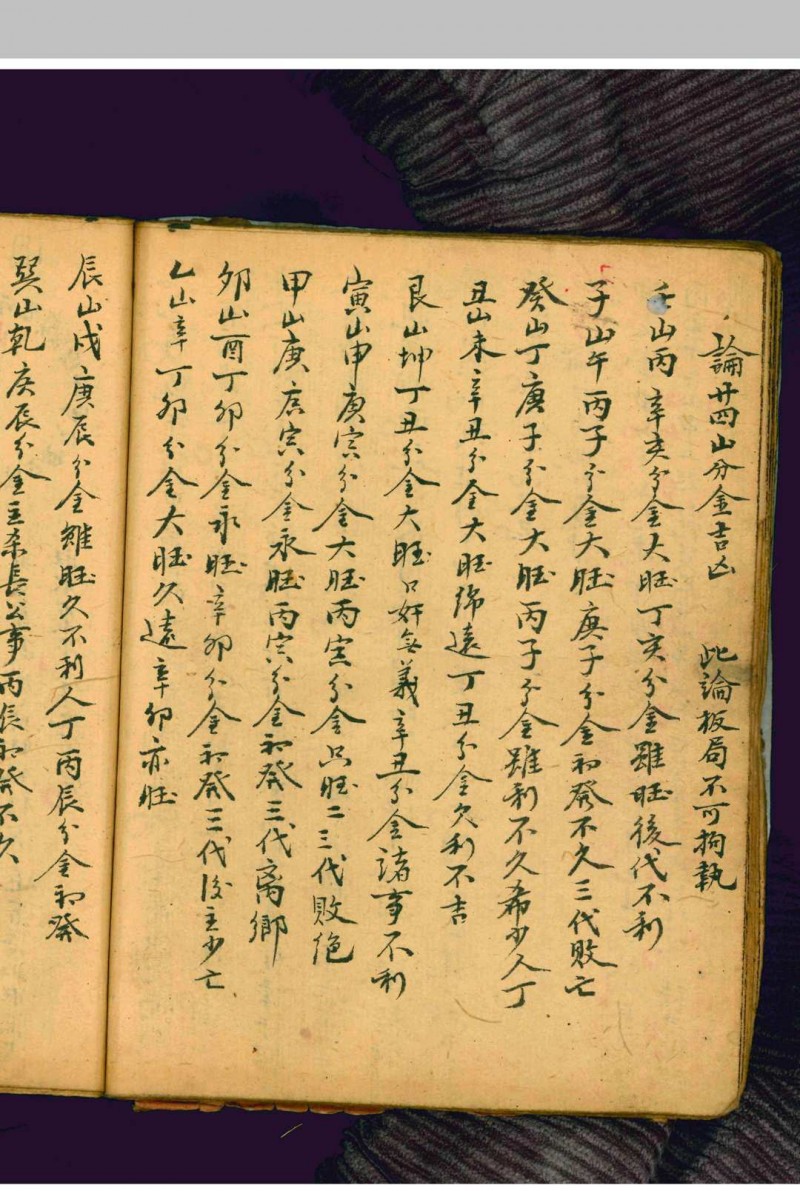 論廿四山分金吉凶　此論板局不可拘執
壬山丙辛亥分金大旺丁亥分金雖旺後代不利
子山午丙子分金大旺庚子分金初發不久三代敗亡
癸山丁庚子分金大旺丙子分金雖利不久希少人丁
丑山未辛丑分金大旺綿遠丁丑分金欠利不吉
艮山坤丁丑分金大旺只奸無義辛丑分金諸事不利
寅山申庚寅分金大旺丙寅分金只旺二三代敗絕
甲山庚庚寅分金永旺丙寅分金初發三代离鄉
卯山酉丁卯分金永旺辛卯分金初發三代後主少亡
乙山辛丁卯分金大旺久遠辛卯亦旺
辰山戌庚辰分金雖旺久不利人丁丙辰分金初發
巽山乾庚辰分金主杀長公事丙辰初發不久